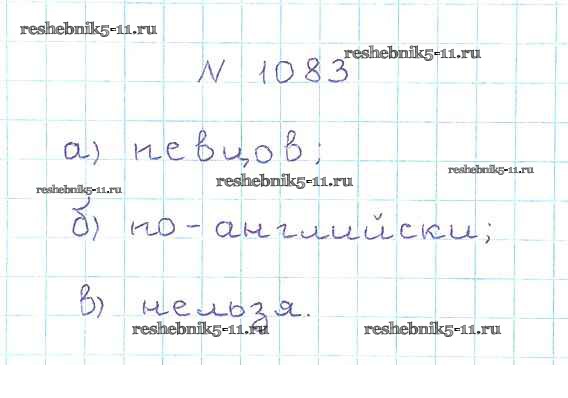 reshebnik5-11.ru
reshebnik5-11.ru
N 1083
а) певцов;
reshebnik5-11.ru
reshebnik5-11.ru
reshebnik5-11.ru
б) по-английски;
в) нельзя.
reshebnik5-11.ru
reshebnik5-11.ru